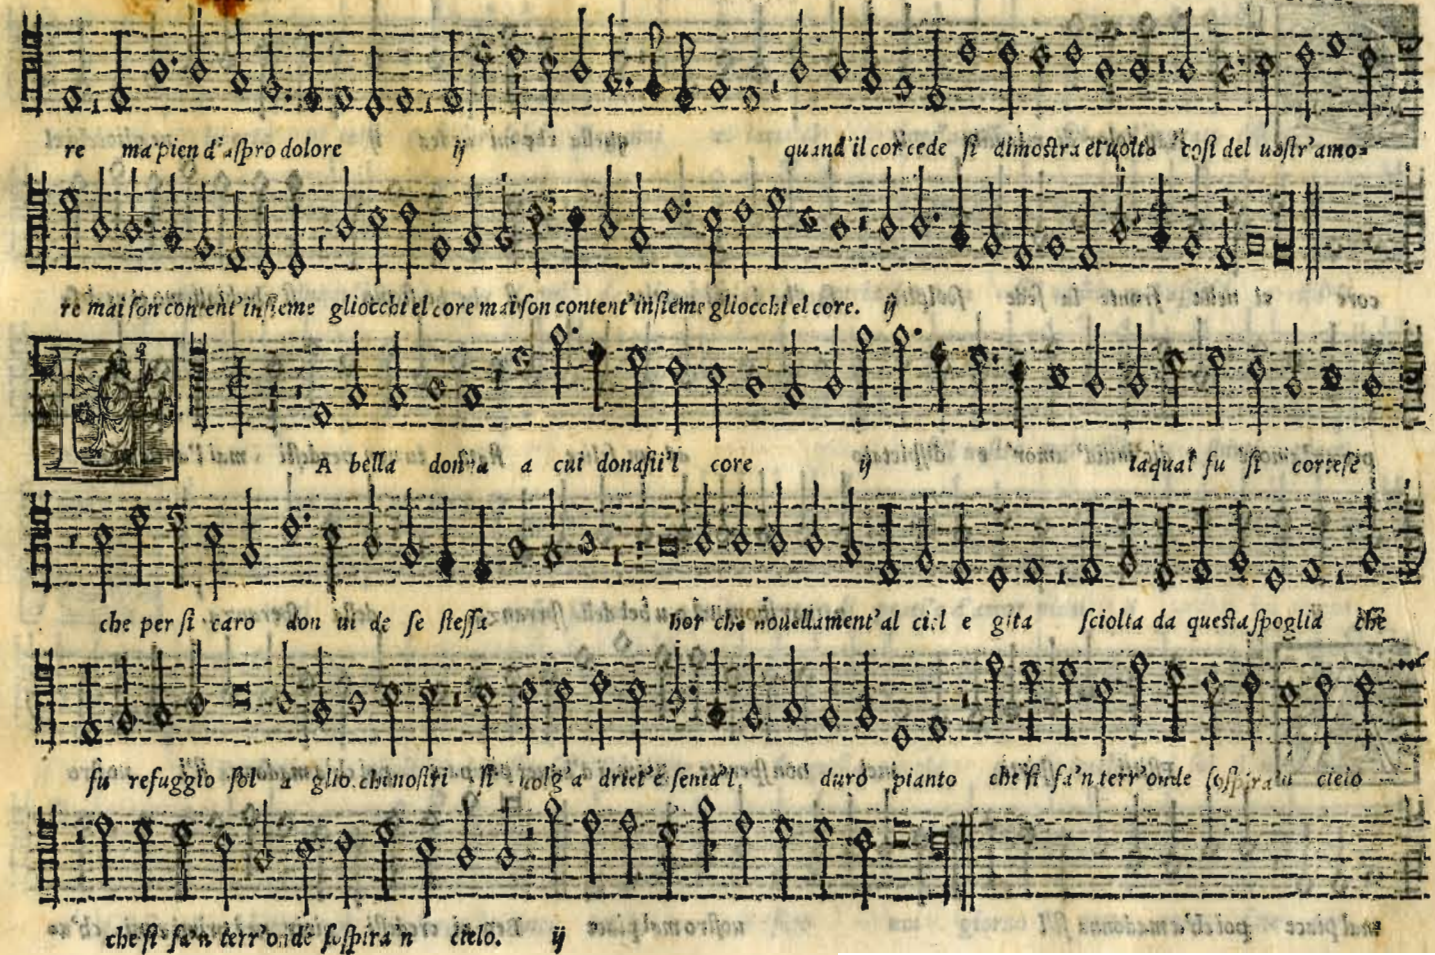 re ma'pien d'aſpro dolore ij quand'il cor cede ſi dimoſtra el uolto coſi del uoſtr'amo=
re mai ſon content'inſieme gliocchi el core mai ſon content'inſieme gliocchi el core. ij
LA bella donna a cui donaſti'l core ij laqual fu ſi corteſe
che per ſi caro don ui de ſe ſteſſa hor che nouellament'al ciel e gita ſciolta da queſta ſpoglia che
fu refuggio ſol a gliocchi noſtri ſi uolg'a driet'e ſenta'l duro pianto che ſi fa'n terr'onde ſoſpira'n cielo
che ſi fa'n terr'onde ſoſpira'n cielo. ij